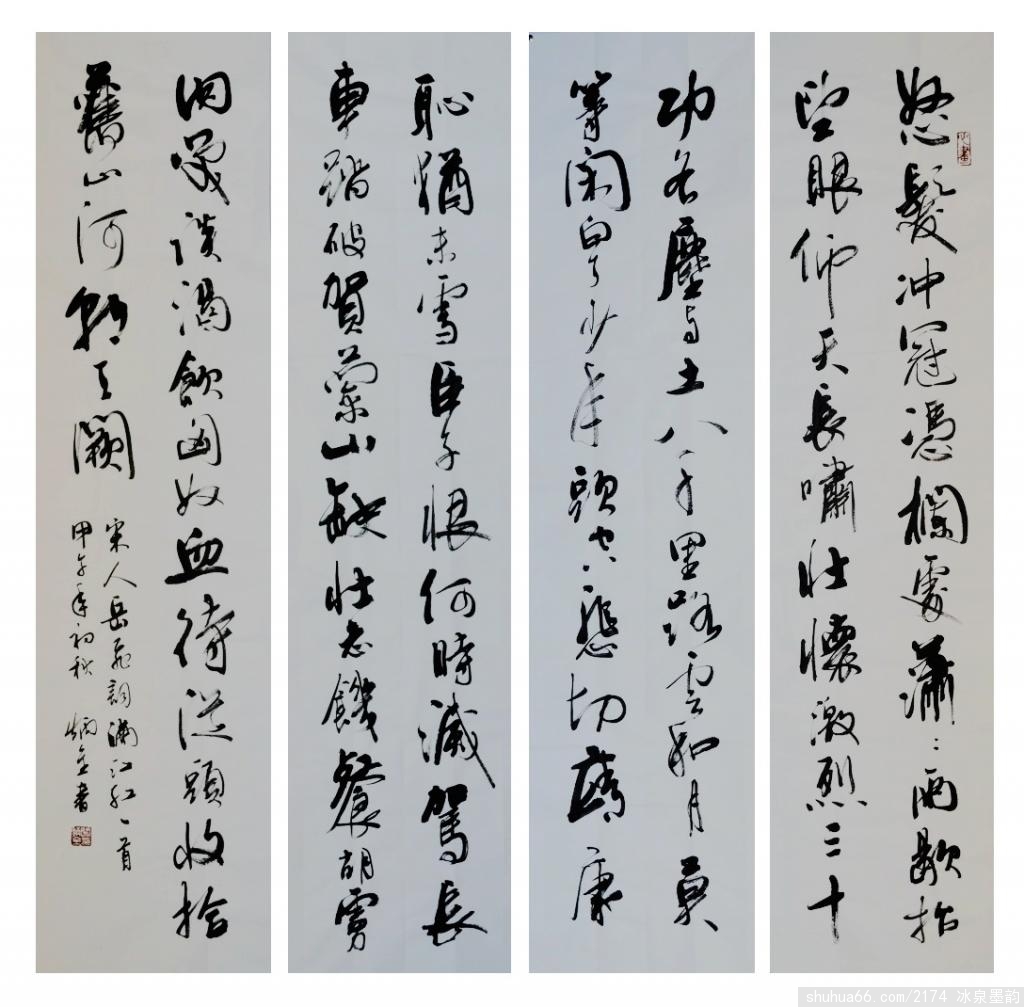 怒髮冲冠憑欄處瀟〻雨歇抬
望眼仰天長嘯壯懷激烈三十
功名塵与土八千里路雲和月莫
等闲白了少年頭空悲切靖康
恥猶未雪臣子恨何時滅駕長
車踏破賀蘭山缺壯志饑餐胡虜
肉笑談渴飲匈奴血待從頭收拾
舊山河朝天闕
宋人岳飛詞滿江紅一首
甲午年初秋 炳金書
shuhua66.com/2174 冰泉墨韵